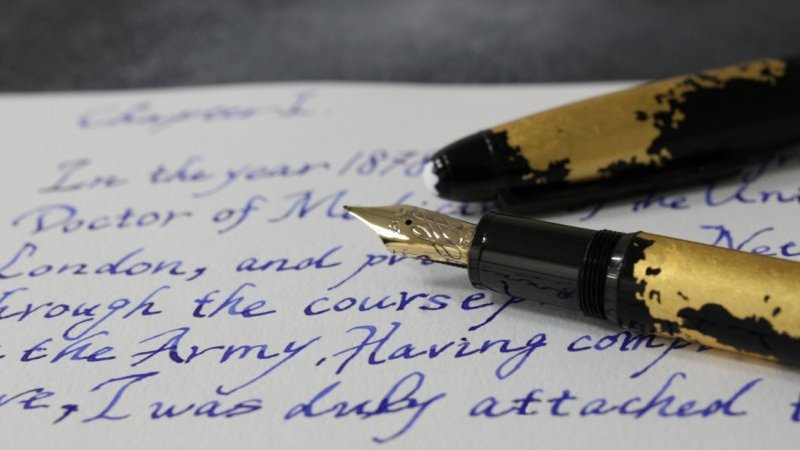 Chapter I.
In the year 1878
Doctor of of the Uni
London, and
hrough the course
the Army. Having comp
I was duly attached t